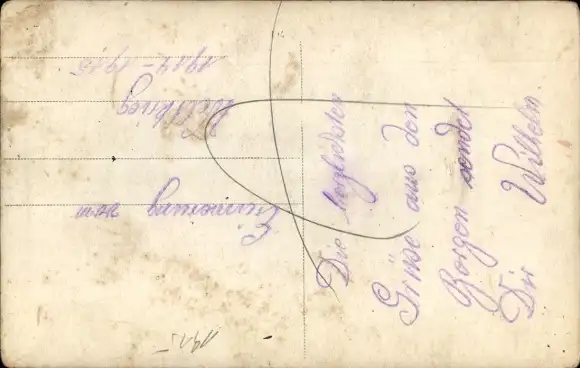 Die herzlichsten
Grüße aus den
sendet
Dir Wilhelm.
Erinnerung vom
Weltkrieg
1914-1915
1915